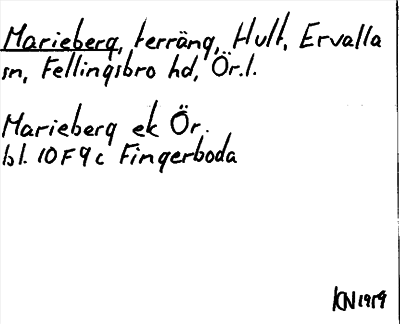 Marieberg, terräng, Hult, Ervalla
sn, Fellingsbro hd, Ör.l.
Marieberg ek Ör.
bl. 10F9c Fingerboda